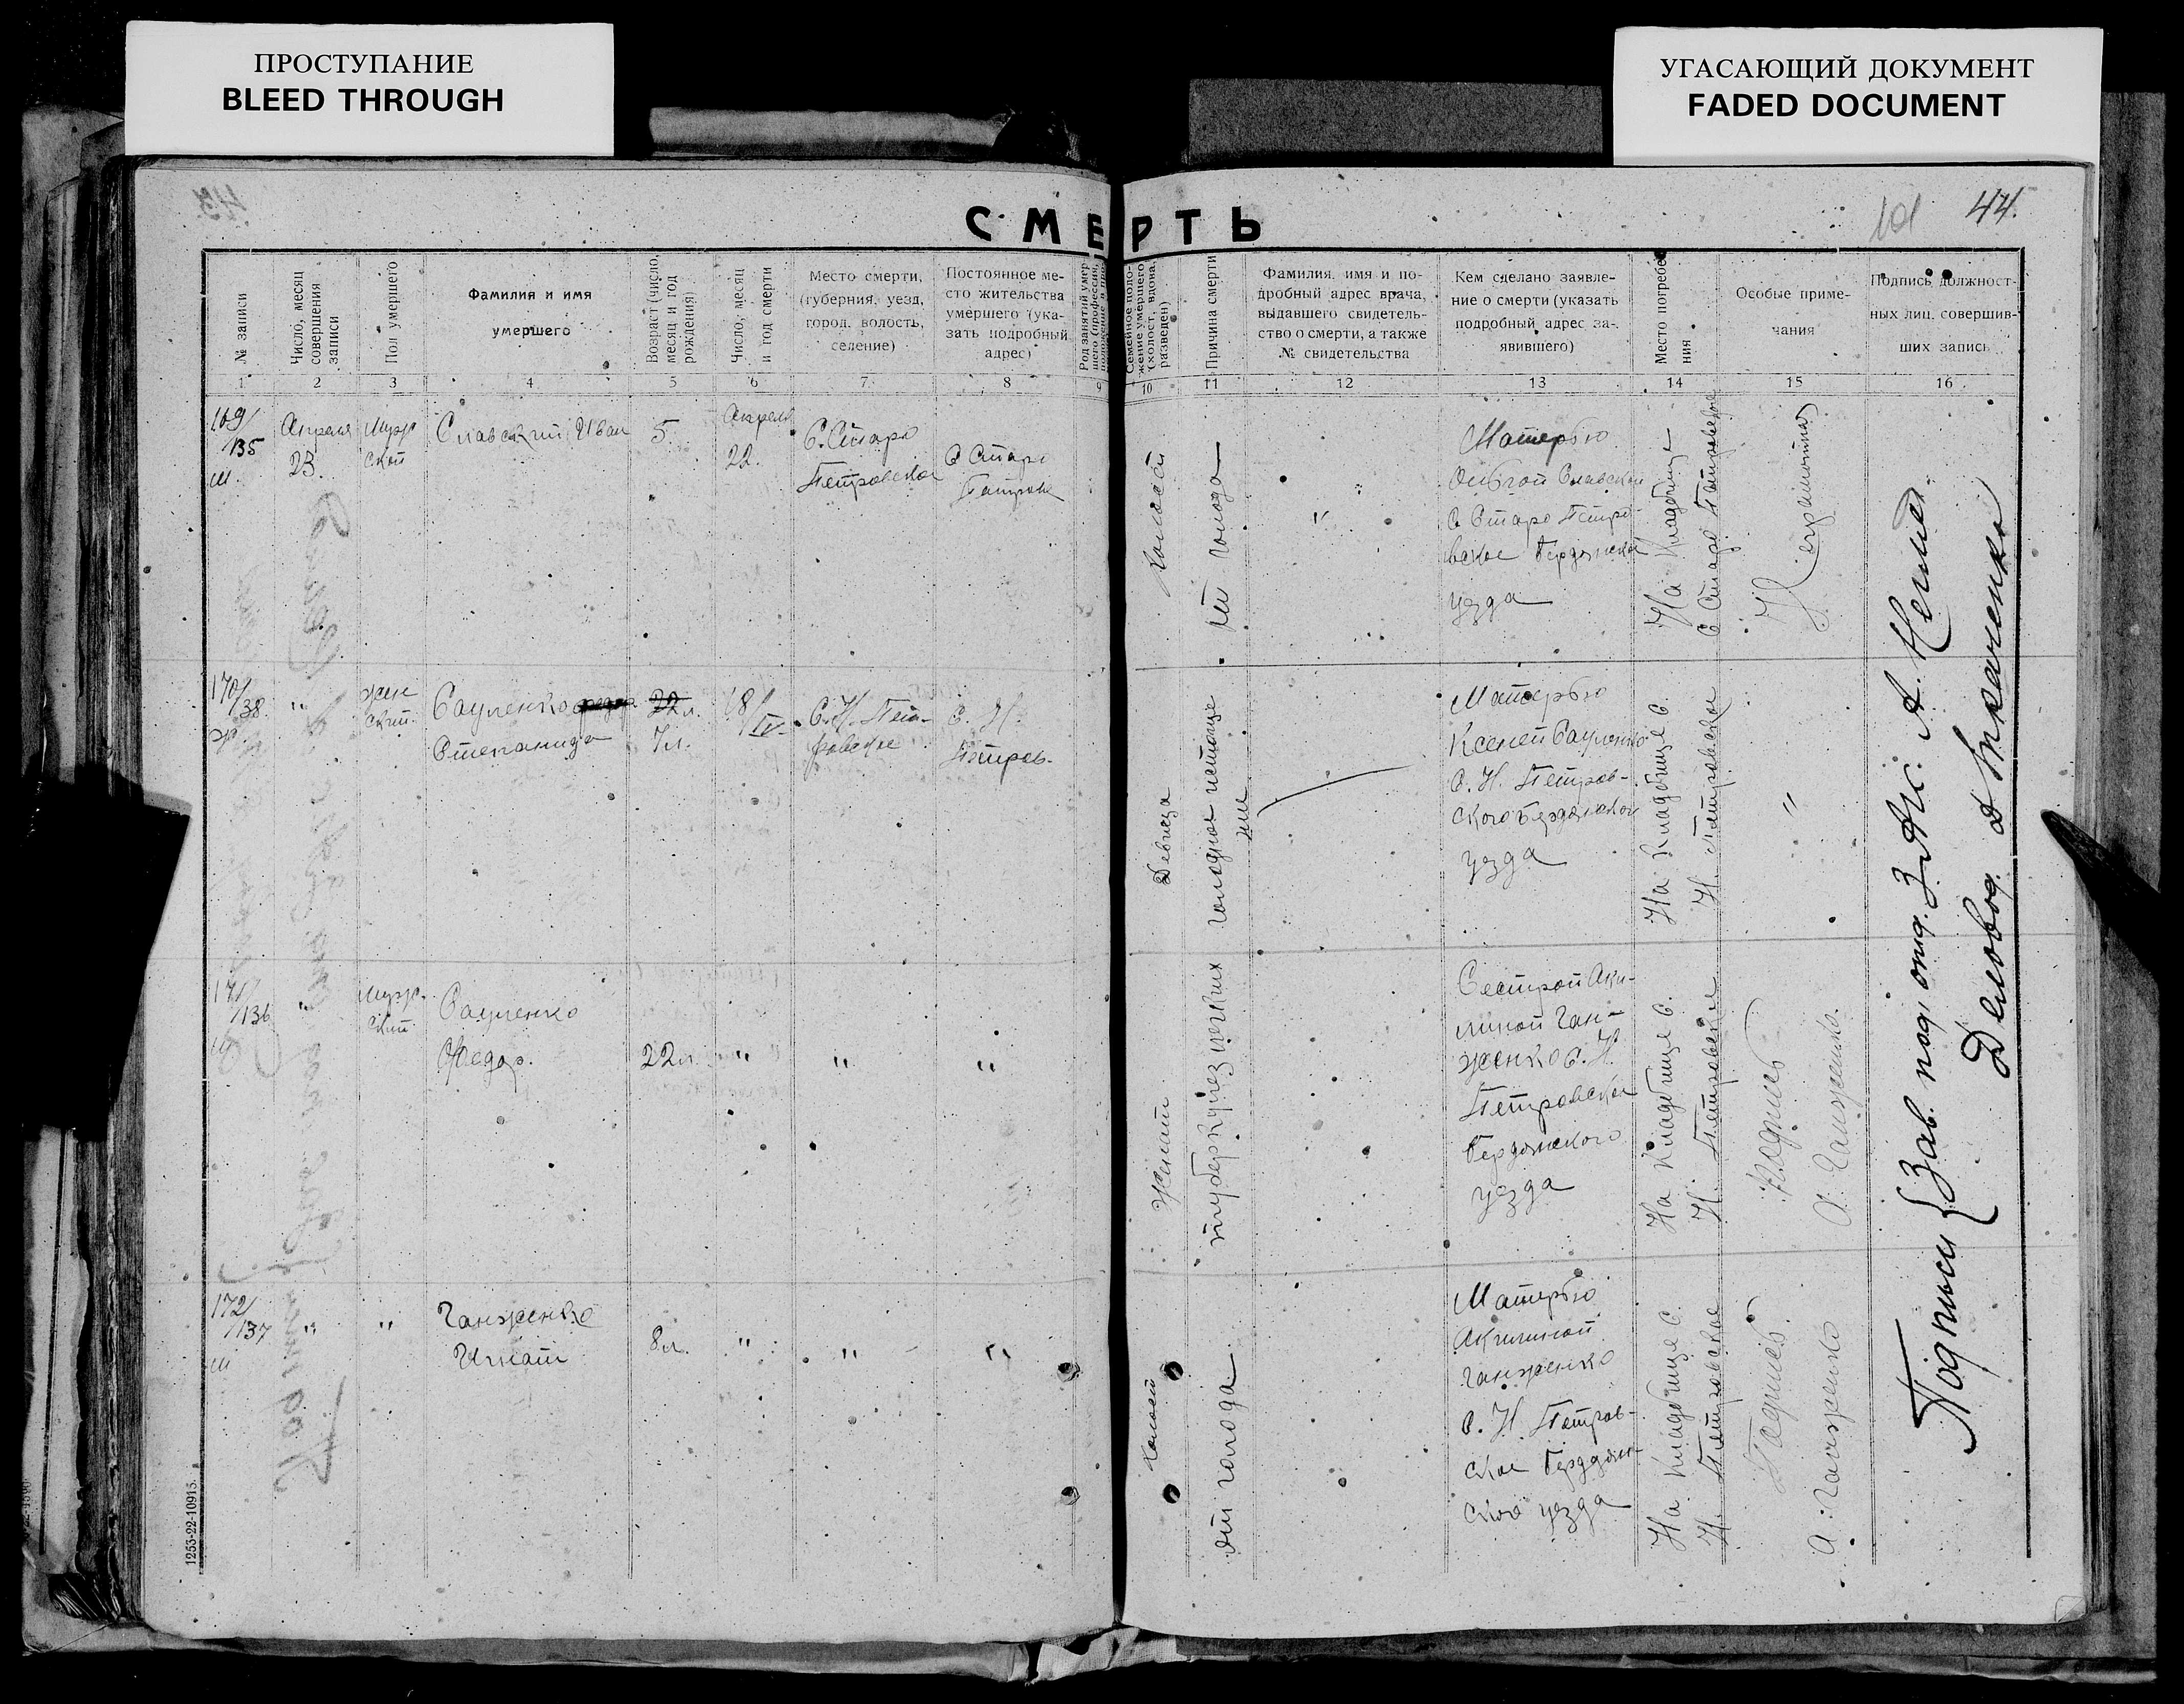 ПРОСТУПАНИЕ
BLEED THROUGH
УГАСАЮЩИЙ ДОКУМЕНТ
FADED DOCUMENT
44.
СМЕРТЬ
№ записи
Число, месяц
совершения
записи
Пол умершего
Фамилия и имя
умершего
Возраст (число,
месяц и год
рождения)
Число, месяц
и год смерти
Место смерти,
(губерния, уезд,
город, волость,
селение)
Постоянное ме-
сто жительства
умершего (ука-
зать подробный
адрес)
Род занятий умер-
шего (профессия,
Семейное поло-
жение умершего
(холост, вдова,
разведен)
Причина смерти
Фамилия, имя и по-
дробный адрес врача,
выдавшего свидетель-
ство о смерти, а также
№ свидетельства
Кем сделано заявле-
ние о смерти (указать
подробный адрес за-
явившего)
Место погребе-
ния
Особые приме-
чания
Подпись должност-
ных лиц, совершив-
ших запись
1 2 3 4 5 6 7 8 9 10 11 12 13 14 15 16
169/
135
м.
Апреля
23.
Муж
ской
Славский Иван
5.
Апреля
22.
С. Старо
Петровское
С Старо
Петровк
Холост
от голода
"
Матерью
Славской
С Старо Петро-
вское Бердянско
уезда
На Кладбище
С Старо Петровское
Неграмотна
170/
38.
ж.
"
жен
ский.
Сауленко
Степанида
22л.
7л.
18/IV.
С. Н. Пет-
ровское
С. Н.
Петров.
Девица
голодное истоще
ние
Матерью
Ксеней Сауленко
С. Н. Петров-
ского Бердянского
уезда
На Кладбище С.
Н. Петровска
"
171/
136
"
Муж.
ский
Сауленко
Федор.
22л.
"
"
"
Женат
туберкулез легких
Сестрой Аки-
линой Ган-
женко С. Н.
Петровское
Бердянского
уезда
На Кладбище С.
Н. Петровское
Подпись
А. Ганженко.
172/
137
м
"
"
Ганженко
Игнат
8л.
"
"
"
Холост
от голода
Матерью
Акилиной
Ганженко
С. Н. Петров-
ское Бердян-
ского уезда
На Кладбище С.
Н. Петровское
Подпись.
А. Ганженко
Подписи { Зав. под. отд. ЗАГС. А.
Деловод. Д Ткаченко
1253-22-10915.